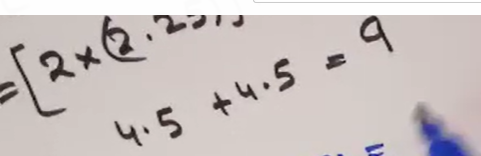 =[2×(2.25)]
4.5 + 4.5 = 9
=